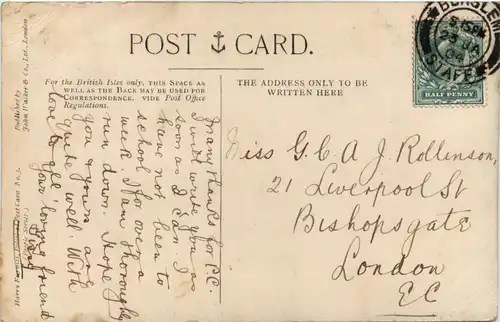 POST CARD.
For the British Isles only, this Space as
well as the Back may be used for
Correspondence. vide Post Office
Regulations.
THE ADDRESS ONLY TO BE
WRITTEN HERE
Published by
John Walker & Co., Ltd., London
HALF PENNY
STAFFS
Many thanks for P.C.
I will write you as
soon as I can. I
have not been to
school for over a
week. I am thoroughly
run down. Hope
you & yours are
quite well. With
love to all
Your loving friend
Miss G. C. A. J. Rollinson,
21 Liverpool St
Bishopsgate
London
E.C